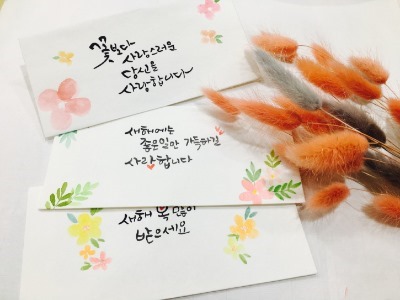 꽃보다
사랑스러운
당신을
사랑합니다
새해에는
좋은일만 가득하길
사랑합니다
새해 복 많이
받으세요